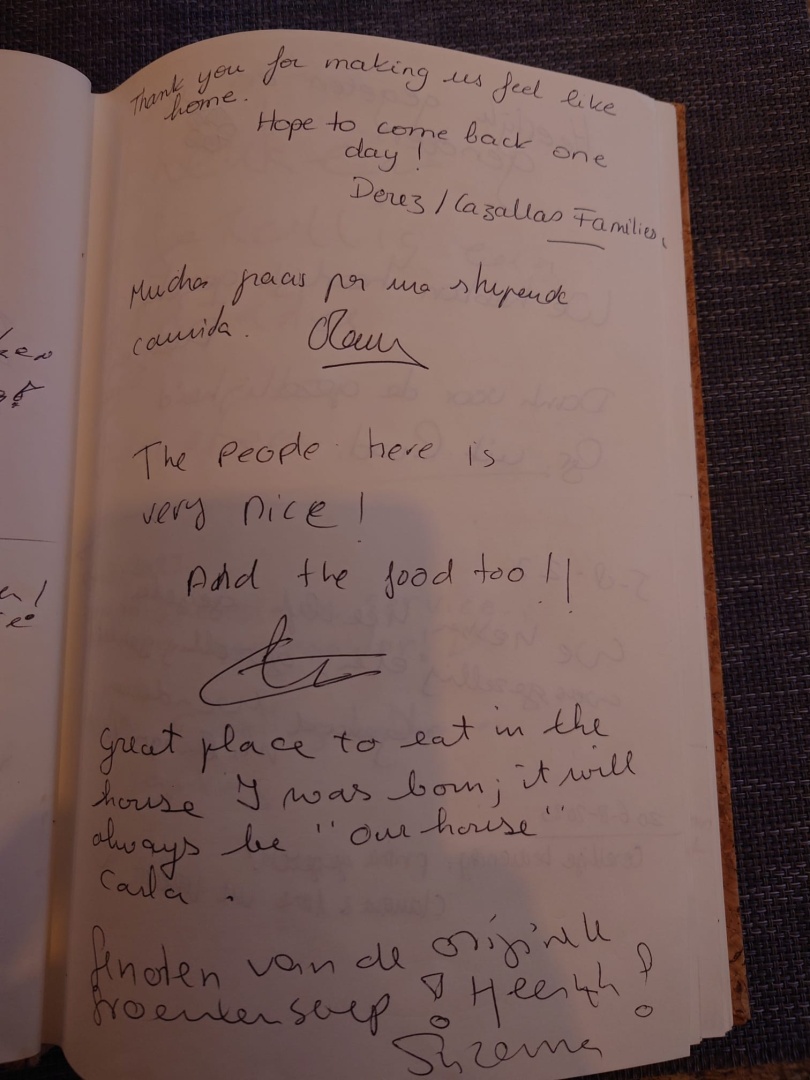 Thank you for making us feel like
home.
Hope to come back one
day!
Derez / Cazallas Families.
Muchas por una
comida.
The people here is
very nice!
And the food too!!
Great place to eat in the
house I was born; it will
always be "our house"
Carla.
van de originele
groentensoep!